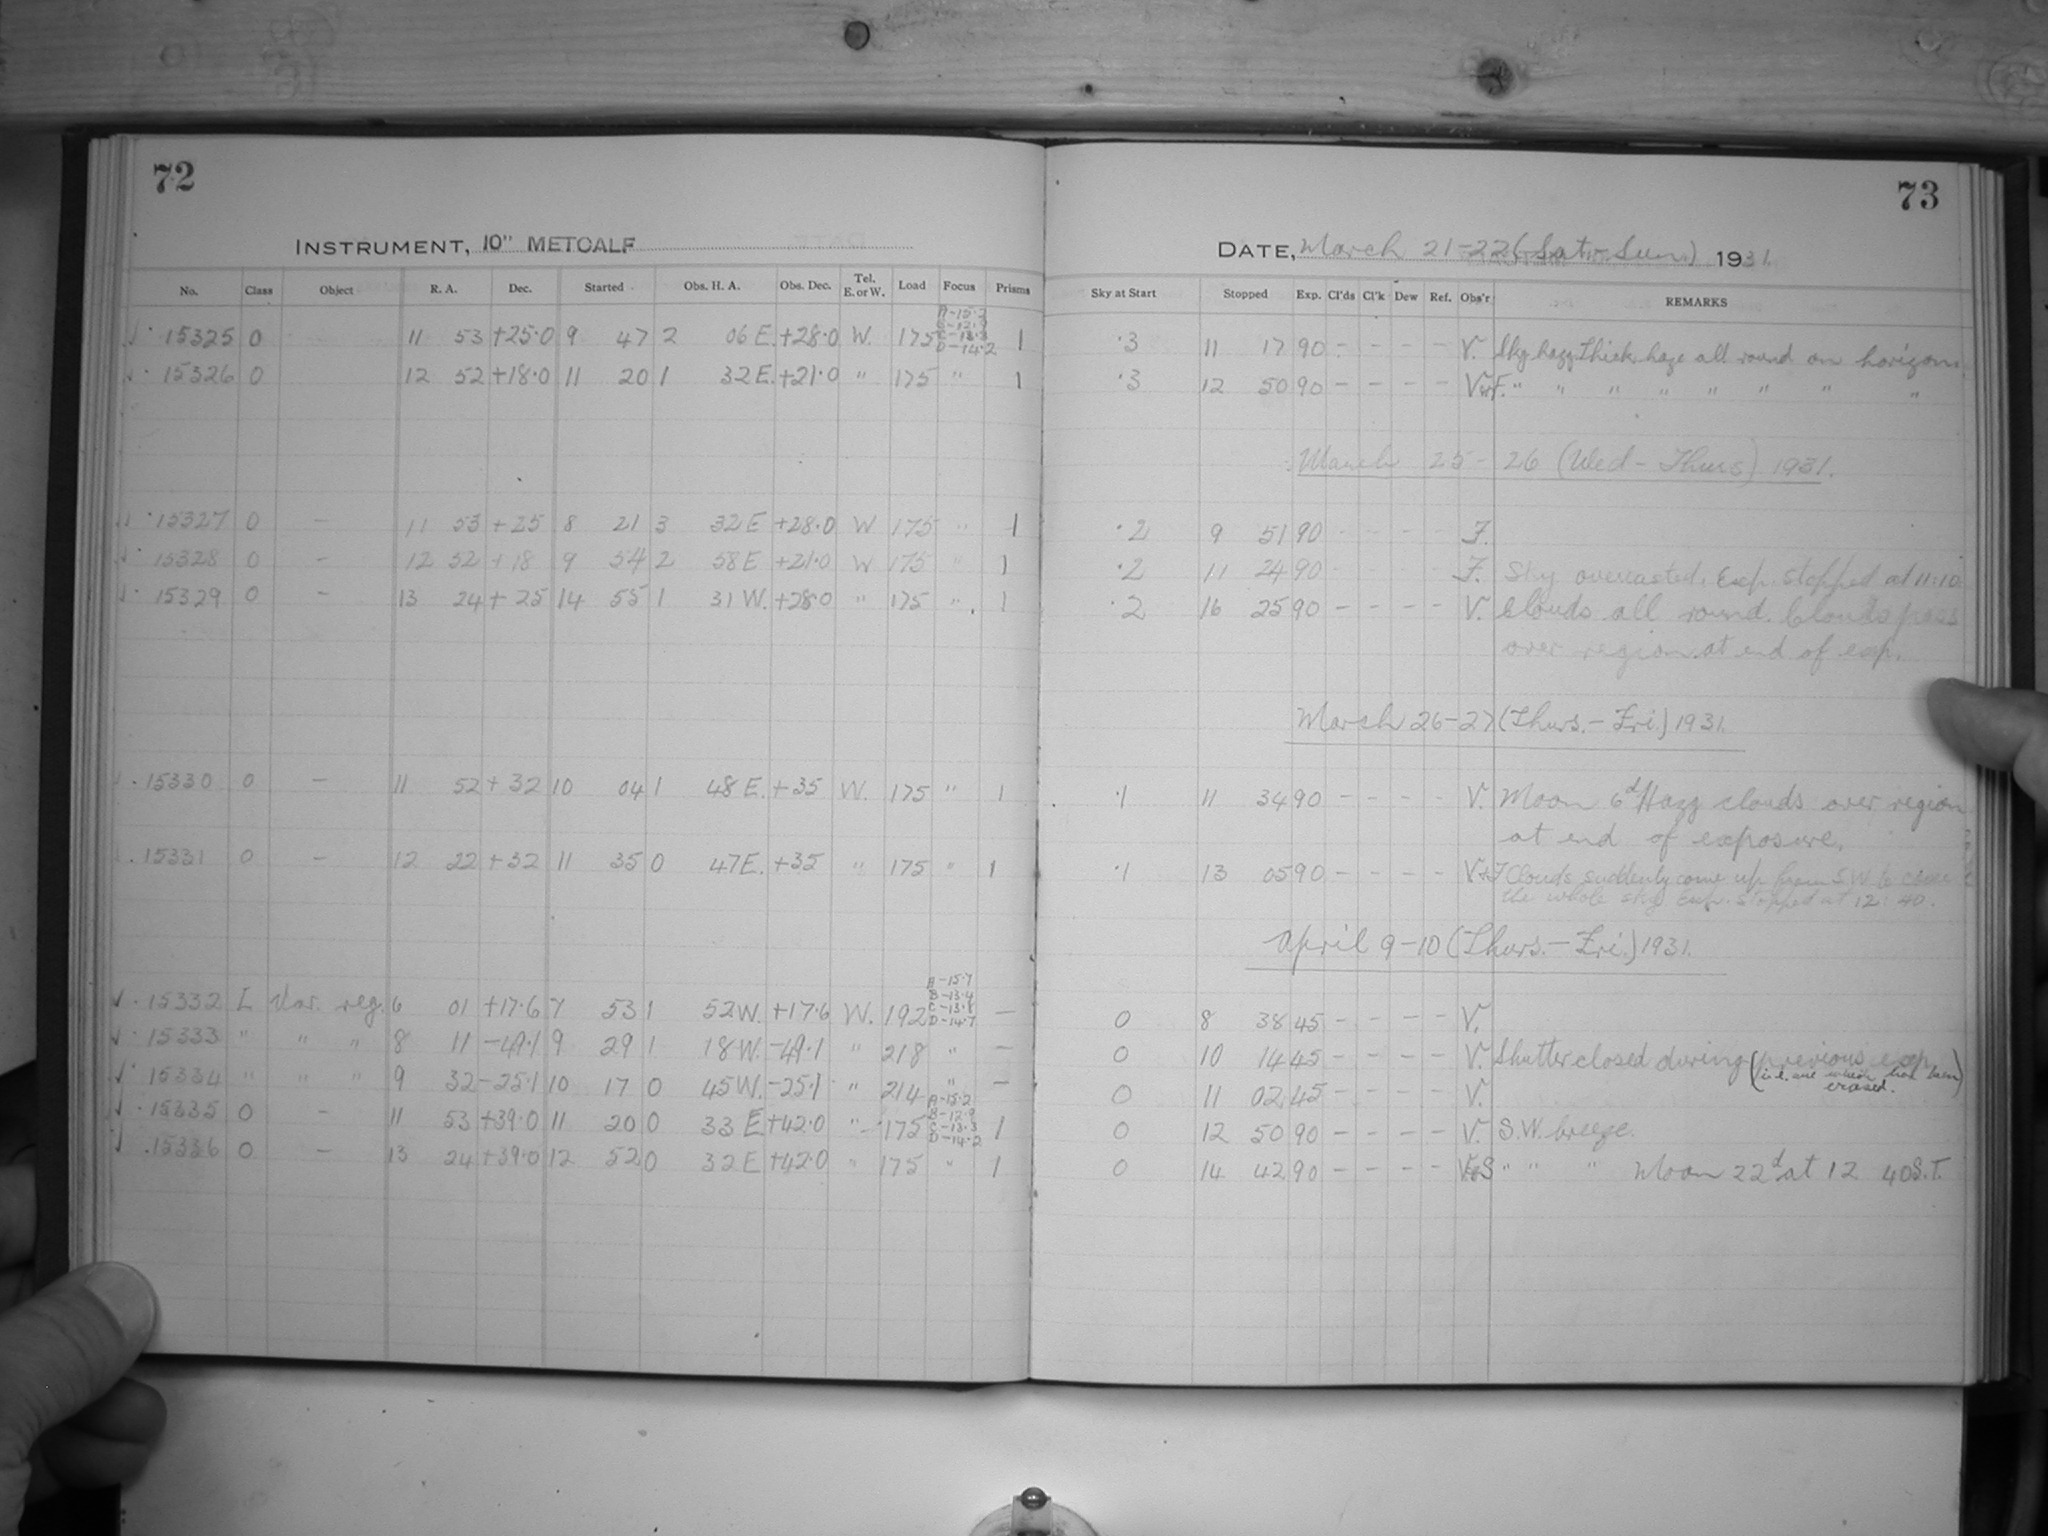 72
INSTRUMENT, 10" METCALF
No. Class Object R. A. Dec. Started Obs. H. A. Obs. Dec. Tel. E. or W. Load Focus Prisms
√ · 15325 0 11 53 +25·0 9 47 2 06 E. +28·0 W. 175 A-15·2 B-12·9 C-13·3 D-14·2 1
√ · 15326 0 12 52 +18·0 11 20 1 32 E. +21·0 " 175 " 1
√ · 15327 0 - 11 53 +25 8 21 3 32 E +28·0 W 175 " 1
√ · 15328 0 - 12 52 +18 9 54 2 58 E +21·0 W 175 " 1
√ · 15329 0 - 13 24 +25 14 55 1 31 W. +28·0 " 175 " 1
√ · 15330 0 - 11 52 +32 10 04 1 48 E. +35 W. 175 " 1
√ · 15331 0 - 12 22 +32 11 35 0 47 E. +35 " 175 " 1
√ · 15332 L Var. reg. 6 01 +17·6 7 53 1 52 W. +17·6 W. 192 A-15·7 B-13·4 C-13·8 D-14·7 -
√ · 15333 " " " 8 11 -49·1 9 29 1 18 W. -49·1 " 218 " -
√ · 15334 " " " 9 32 -25·1 10 17 0 45 W. -25·1 " 214 " -
√ · 15335 0 - 11 53 +39·0 11 20 0 33 E +42·0 " 175 A-15·2 B-12·9 C-13·3 D-14·2 1
√ · 15336 0 - 13 24 +39·0 12 52 0 32 E +42·0 " 175 " 1
73
DATE, March 21-22 (Sat.-Sun.) 1931.
Sky at Start Stopped Exp. Cl'ds Cl'k Dew Ref. Obs'r REMARKS
·3 11 17 90 - - - - V. Sky hazy. Thick haze all round on horizon
·3 12 50 90 - - - - V+F. " " " " " " " "
March 25-26 (Wed-Thurs) 1931.
·2 9 51 90 - - - - F.
·2 11 24 90 - - - - F. Sky overcasted. Exp. stopped at 11:10
·2 16 25 90 - - - - V. Clouds all round. Clouds pass
over region at end of exp.
March 26-27 (Thurs.-Fri.) 1931.
·1 11 34 90 - - - - V. Moon 6d Hazy clouds over region
at end of exposure.
·1 13 05 90 - - - - V+F Clouds suddenly come up from S.W. to cover
the whole sky. Exp. stopped at 12:40.
April 9-10 (Thurs.-Fri.) 1931.
0 8 38 45 - - - - V.
0 10 14 45 - - - - V. Shutter closed during previous exp.
(i.e. one which has been erased.)
0 11 02 45 - - - - V.
0 12 50 90 - - - - V. S.W. breeze.
0 14 42 90 - - - - " " " Moon 22d at 12 40 S.T.